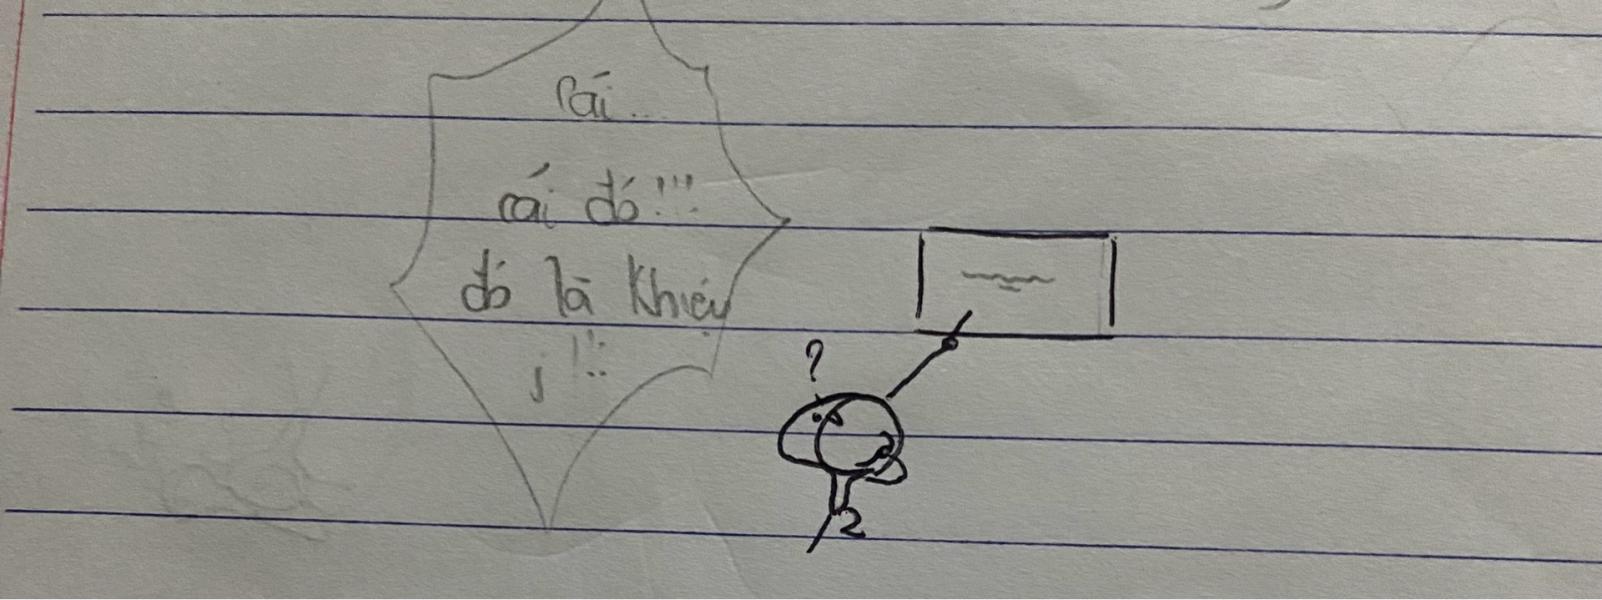 cái...
cái đó!!!
đó là khiếu
j!!:
?
2